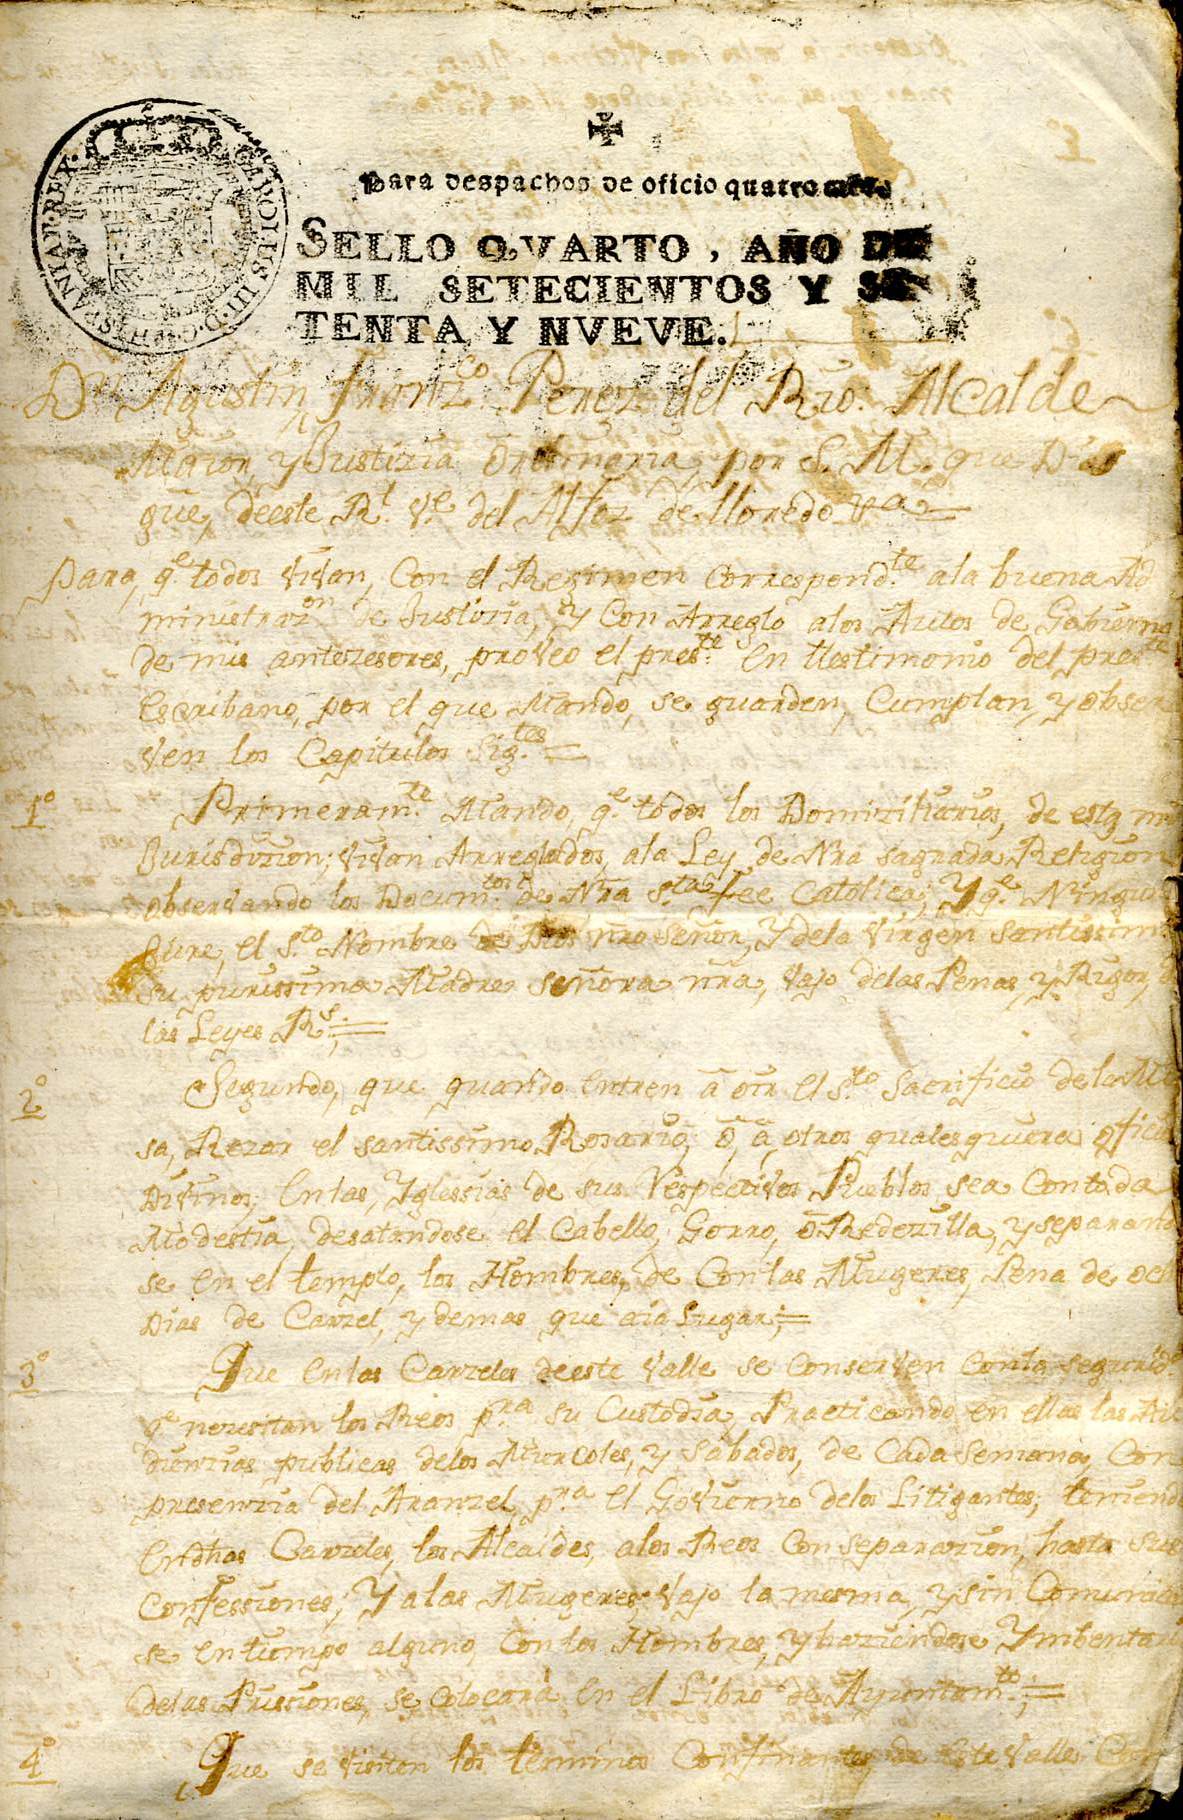 CAROLUS III D G HISPANIAR REX
Para despachos de oficio quatro mrs.
SELLO QVARTO, AÑO DE
MIL SETECIENTOS Y SE-
TENTA Y NVEVE.
Dn Agustin Franzco Perez del Rio. Alcalde
Maior, y Justizia Ordinaria, por S. M. que Ds
gue, deeste Rl Ve del Alfoz de lloredo Va=
Para, qe todos vivan, Con el Regimen correspondte ala buena Ad
ministrazon de Justizia, Y Con Arreglo alos Autos de Govierno
de mis antezesores, proveo el preste en testimonio del preste
Escribano, por el que Mando, se guarden, Cumplan, y obser
ven los Capitulos Sigtes=
1º Primeramte Mando, qe todos los Domiziliarios, de esta mi
Jurisdizion; vivan Arreglados, ala Ley, de Nra sagrada Religion
observando los Docummtos de Nra Sta Fee Catolica; Y qe Ninguno
Jure, el Sto Nombre de Dios nro Señor, Y dela Virgen santissima
su purissima Madre señora nra, vajo delas Penas, y Rigor, d
las Leyes Rs.=
2º Segundo, que quando entren à oir el Sto Sacrificio dela Mi
sa, Rezar el santissimo Rosario, ò, à, otros qualesquiera oficios
Divinos; en las, Yglessias de sus respectivos Pueblos, sea Contoda
Modestia, desatandose el Cabello, Gorro, ò Redezilla, y separando
se en el templo, los Hombres, de Con las Mugeres, Pena de och
Dias de Carzel, y demas que aia Lugar;=
3º Que en las Carzeles deeste Valle se Conserven Conla seguridd
qe nezesitan los Reos pra su Custodia, Practicando en ellas las Au
diencias publicas delos Miercoles, y Sabados, de Cada Semana, Con
presenzia del Aranzel, pra el Govierno delos Litigantes; teniendo
En dhas Carzeles, los Alcaides, alos Reos Con separazion, hasta sus
Confessiones; Y alas Mugeres; vajo la mesma, y sin Comunicar
se en tiempo alguno, Con los Hombres, y haziendose Ymbentario
delas Prissiones, se colocarà en el Libro de Ayuntamto;=
4º Que se visiten los terminos Confinantes, de Este Valle, Con